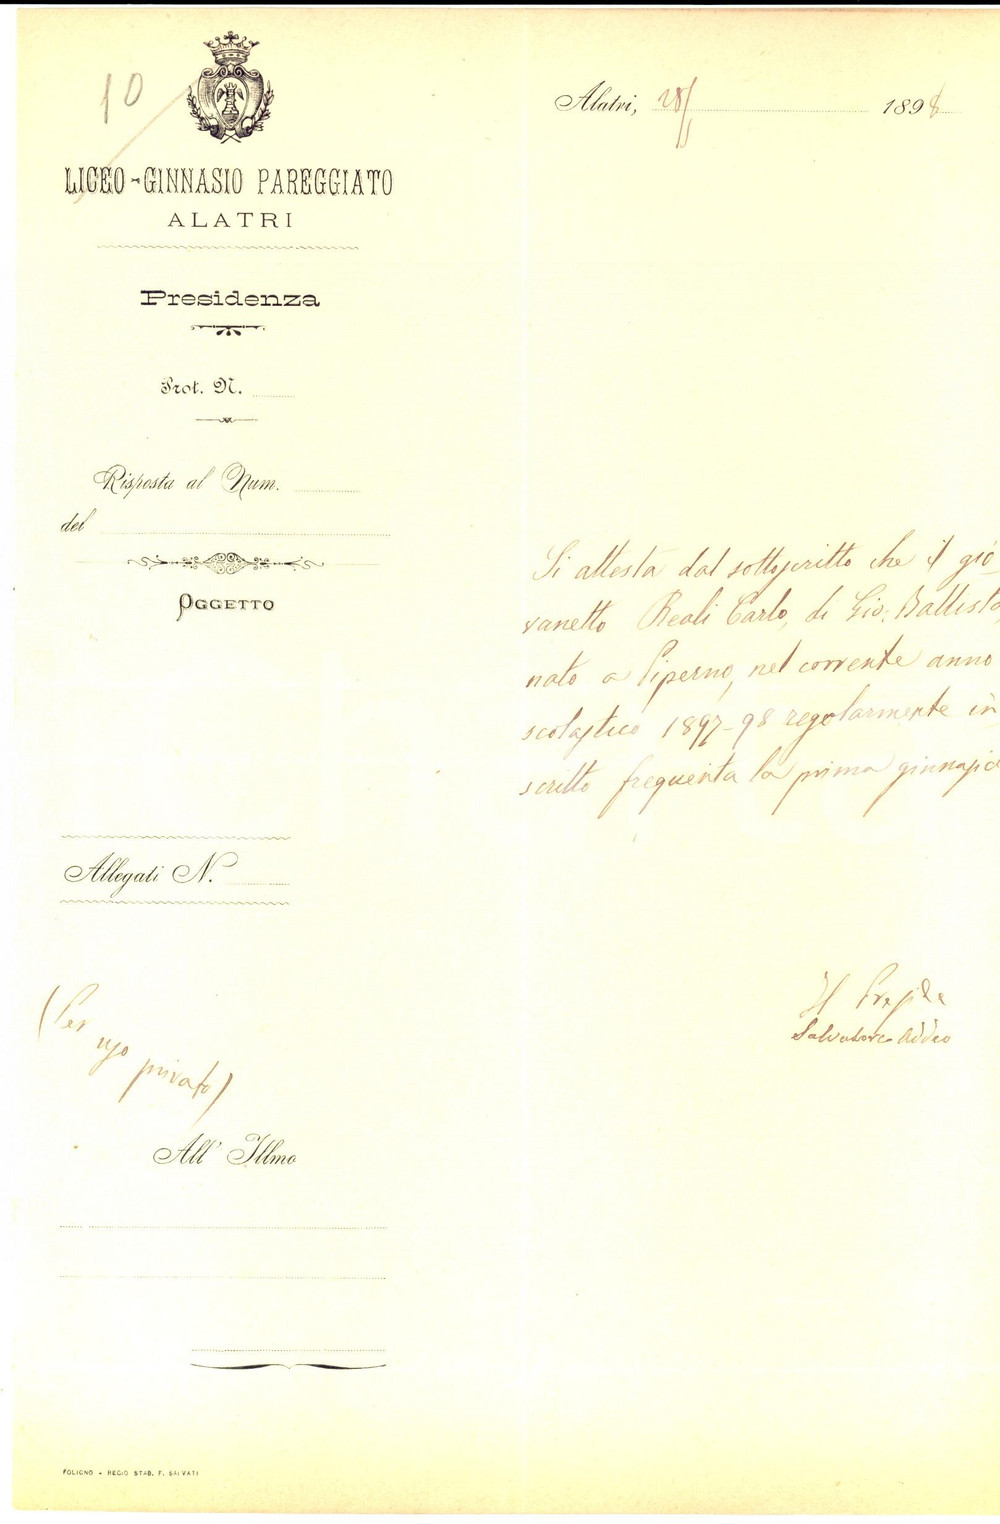 10
LICEO-GINNASIO PAREGGIATO
ALATRI
Presidenza
Prot. N.
Risposta al Num.
del
OGGETTO
Allegati N.
(Per
uso
privato)
All' Illmo
FOLIGNO - REGIO STAB. F. SALVATI
Alatri, 28/ 1898
Si attesta dal sottoscritto che il gio-
vanetto Reali Carlo, di Gio: Battista,
nato a Piperno, nel corrente anno
scolastico 1897-98 regolarmente in
scritto frequenta la prima ginnasia
Il Preside
Salvatore Addeo